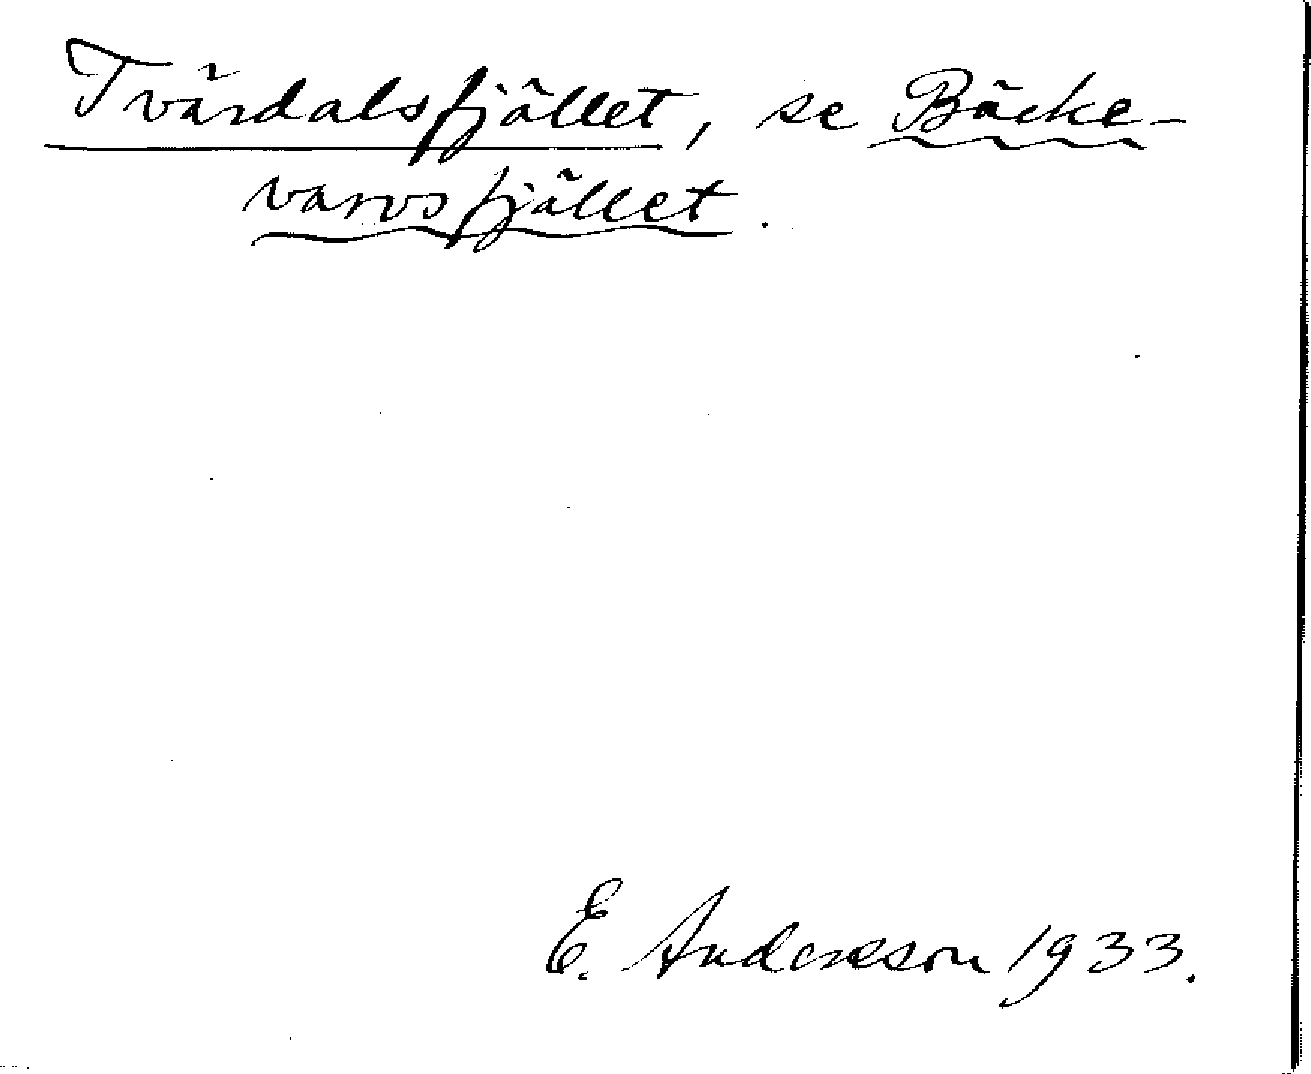 Tvärdalsfjället, se Bäcke-
varvsfjället.
E. Andersson 1933.